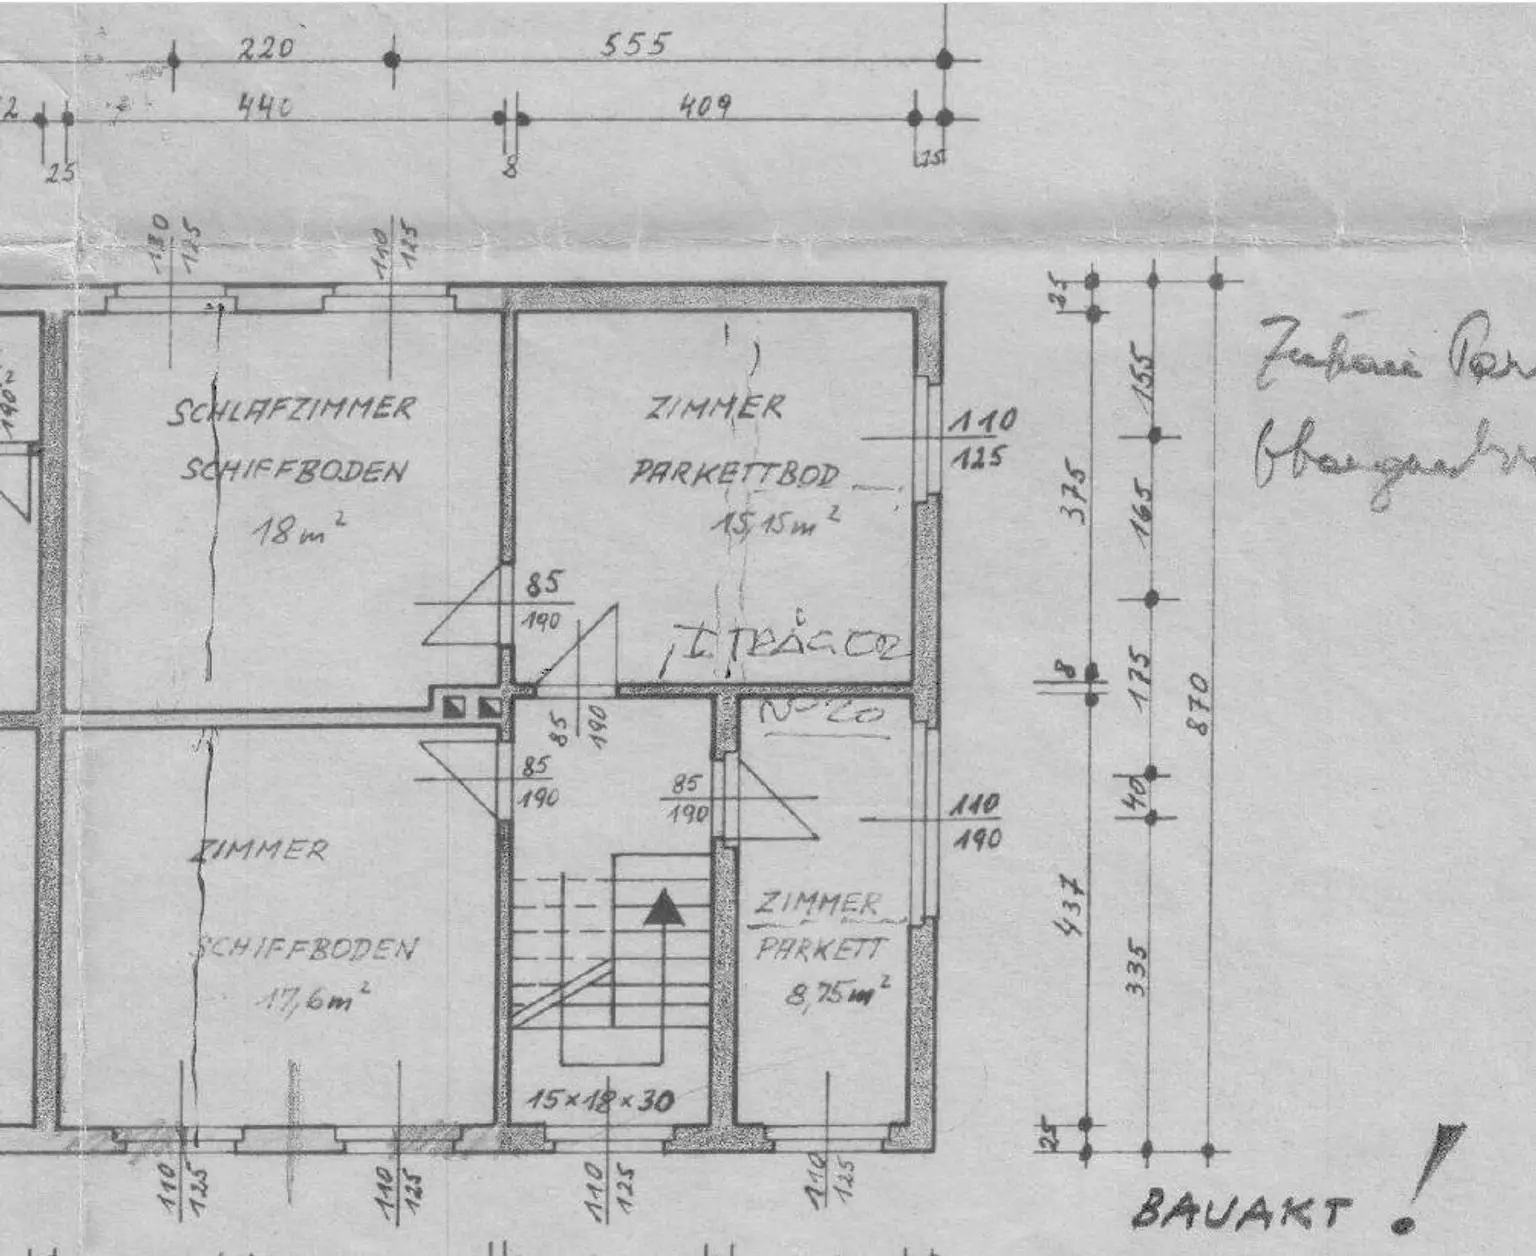 220
555
2
440
409
25
8
25
130
125
110
125
25
155
SCHLAFZIMMER
SCHIFFBODEN
18m²
ZIMMER
PARKETTBOD
15,15m²
110
125
190
375
165
85
190
I. TRÄGER
8
175
870
85
190
Nº 20
85
190
85
190
110
190
40
ZIMMER
SCHIFFBODEN
17,6m²
ZIMMER
PARKETT
8,75m²
437
335
15×18×30
25
110
125
110
125
110
125
110
125
BAUAKT !